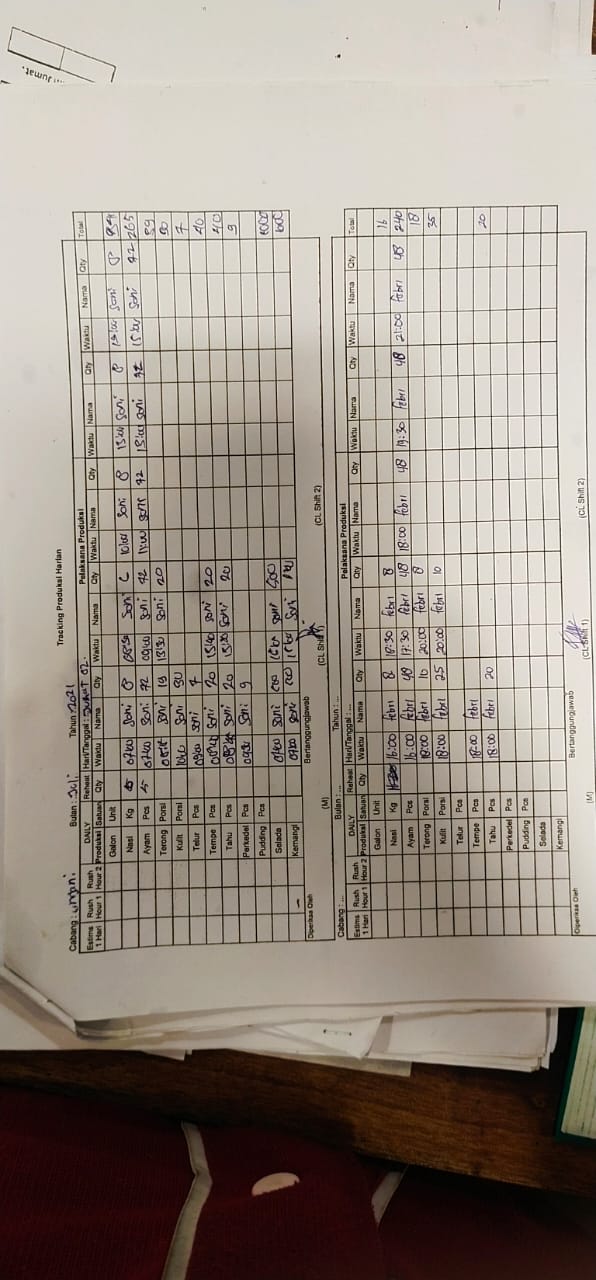 Jumat.
Tracking Produksi Harian
Cabang : Bulan : Juli Tahun : 2021
Estims 1 Hari Rush Hour 1 Rush Hour 2 DAILY Produksi Satuan Reheat Qty Hari/Tanggal : Jumat 02. Pelaksana Produksi Total
Waktu Nama Qty Waktu Nama Qty Waktu Nama Qty Waktu Nama Qty Waktu Nama Qty
Galon Unit
Nasi Kg 07:00 Soni 8 Soni Soni 8 Soni 8 Soni 8
Ayam Pcs 5 07:00 Soni 72 09:00 Soni 42 11:00 Soni 42 Soni 42 Soni 42 265
Terong Porsi Soni 19 Soni 20
Kulit Porsi Soni
Telur Pcs Soni 7 7
Tempe Pcs Soni 20 Soni 20 40
Tahu Pcs Soni 20 Soni 20 40
Perkedel Pcs Soni 9 9
Pudding Pcs
Selada 07:00 Soni Soni 500 1000
Kemangi 07:00 Soni Soni
Diperiksa Oleh Bertanggungjawab
(M) (CL Shift 1) (CL Shift 2)
Cabang : ... Bulan : ... Tahun : ...
Estims 1 Hari Rush Hour 1 Rush Hour 2 DAILY Produksi Satuan Reheat Qty Hari/Tanggal : ... Pelaksana Produksi Total
Waktu Nama Qty Waktu Nama Qty Waktu Nama Qty Waktu Nama Qty Waktu Nama Qty
Galon Unit
Nasi Kg 16:00 febri 8 18:30 febri 8 16
Ayam Pcs 16:00 febri 48 17:30 febri 48 18:00 febri 48 19:30 febri 48 21:00 febri 48 240
Terong Porsi 18:00 febri 10 20:00 febri 8 18
Kulit Porsi 18:00 febri 25 20:00 febri 10 35
Telur Pcs
Tempe Pcs 18:00 febri
Tahu Pcs 18:00 febri 20 20
Perkedel Pcs
Pudding Pcs
Selada
Kemangi
Diperiksa Oleh Bertanggungjawab
(M) (CL Shift 1) (CL Shift 2)